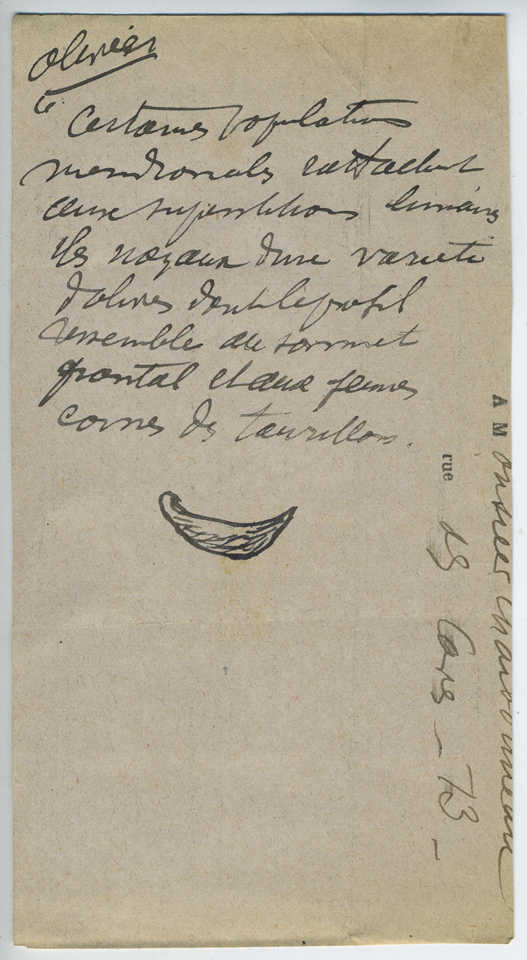 olivier
" Certaines populations
meridionales rattachent
aux superstitions lunaires
les noyaux d'une varieté
d'olives dont le profil
ressemble au sommet
frontal et aux jeunes
cornes des taurillons.
A M
rue des Lois - 73 -